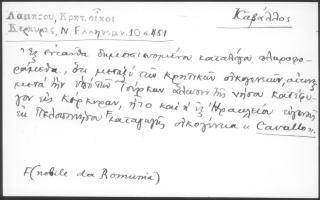 Λάμπρου, Κρητ. οἶκοι
Κερκύρας, Ν. Ελληνομν. 10 σ 451
Καβάλλος
Ἐξ ἐνταῦθα δημοσιευομένου καταλόγου πληροφο-
ρούμεθα, ὅτι μεταξὺ τῶν κρητικῶν οἰκογενειῶν, αἵτινες
μετὰ τὴν ὑπὸ τῶν Τούρκων ἅλωσιν τῆς νήσου κατέφυ-
γον εἰς Κέρκυραν, ἦτο καὶ ἡ ἐξ Ἡρακλείου εὐγενὴς
ἐκ Πελοποννήσου F καταγωγῆς οἰκογένεια « Cavallo ».
F (nobile da Romania)